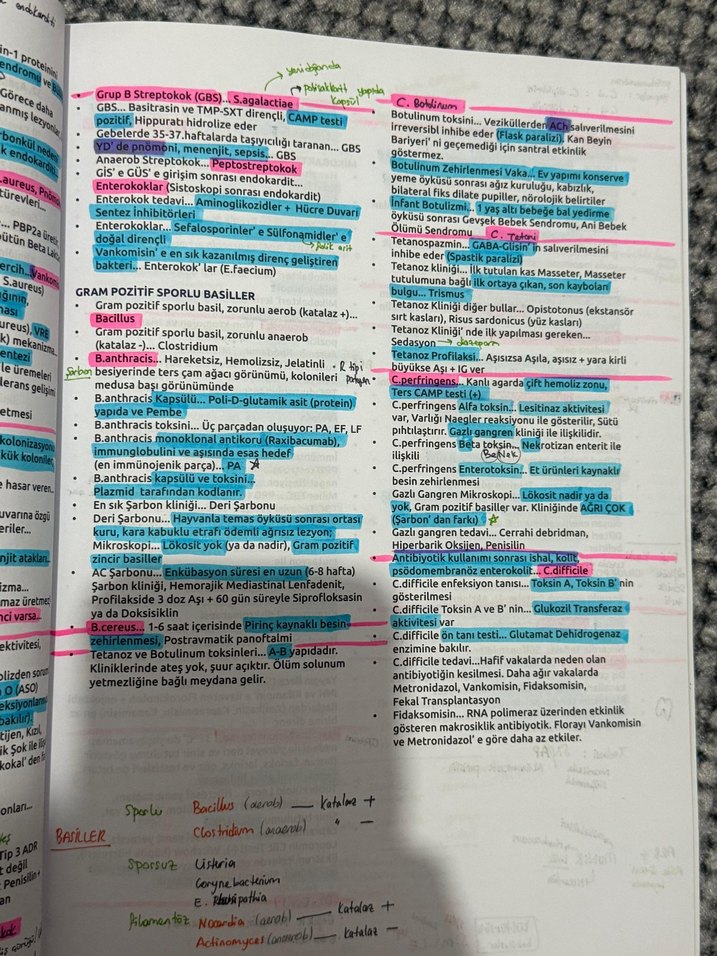 endokardit
in-1 proteinini
endromu ve
Görece daha
anmış lezyonlar
rbonkül nedeni
k endokardit...
.aureus, Pnömo
türevleri...
... PBP2a üre
bütün Beta Lak
ercih...Vankomis
S.aureus)
ığının,
nası
ureus), VRE
k) mekanizma..
entezi
ile üremeleri
lerans gelişimi
etmesi
kolonizasyonu
kük koloniler,
e hasar veren..
uvarına özgü
eriler...
njit atakları..
izma...
maz üretmez
ncı varsa...
ektivitesi,
olizden sorum
O (ASO)
eksiyonların
bakılır).
tijen, Kızıl,
ik Şok ile
kokal' den
onları...
Tip 3 ADR
t değil
Penisilin+
an
kok
yenidoğanda
polisakkarit yapıda
kapsül
• Grup B Streptokok (GBS)... S.agalactiae
GBS... Basitrasin ve TMP-SXT dirençli, CAMP testi
pozitif, Hippuratı hidrolize eder
• Gebelerde 35-37.haftalarda taşıyıcılığı taranan... GBS
• YD' de pnömoni, menenjit, sepsis... GBS
• Anaerob Streptokok... Peptostreptokok
• GİS' e GÜS' e girişim sonrası endokardit...
Enterokoklar (Sistoskopi sonrası endokardit)
• Enterokok tedavi... Aminoglikozidler + Hücre Duvarı
Sentez İnhibitörleri
• Enterokoklar... Sefalosporinler' e Sülfonamidler' e
doğal dirençli
folik asit
• Vankomisin' e en sık kazanılmış direnç geliştiren
bakteri... Enterokok' lar (E.faecium)
GRAM POZİTİF SPORLU BASİLLER
• Gram pozitif sporlu basil, zorunlu aerob (katalaz +)...
Bacillus
• Gram pozitif sporlu basil, zorunlu anaerob
(katalaz -)... Clostridium
• B.anthracis... Hareketsiz, Hemolizsiz, Jelatinli
Şarbon besiyerinde ters çam ağacı görünümü, kolonileri
medusa başı görünümünde
R tipi
• B.anthracis Kapsülü... Poli-D-glutamik asit (protein)
yapıda ve Pembe
• B.anthracis toksini... Üç parçadan oluşuyor: PA, EF, LF
• B.anthracis monoklonal antikoru (Raxibacumab),
immunglobulini ve aşısında esas hedef
(en immünojenik parça)... PA
• B.anthracis kapsülü ve toksini..
Plazmid tarafından kodlanır.
• En sık Şarbon kliniği... Deri Şarbonu
• Deri Şarbonu... Hayvanla temas öyküsü sonrası ortası
kuru, kara kabuklu etrafı ödemli ağrısız lezyon;
Mikroskopi... Lökosit yok (ya da nadir), Gram pozitif
zincir basiller
• AC Şarbonu... Enkübasyon süresi en uzun (6-8 hafta)
Şarbon kliniği, Hemorajik Mediastinal Lenfadenit,
Profilakside 3 doz Aşı + 60 gün süreyle Siprofloksasin
ya da Doksisiklin
• B.cereus... 1-6 saat içerisinde Pirinç kaynaklı besin
zehirlenmesi, Postravmatik panoftalmi
• Tetanoz ve Botulinum toksinleri... A-B yapıdadır.
Kliniklerinde ateş yok, şuur açıktır. Ölüm solunum
yetmezliğine bağlı meydana gelir.
C. Botulinum
• Botulinum toksini... Veziküllerden ACh salıverilmesini
irreversibl inhibe eder (Flask paralizi), Kan Beyin
Bariyeri' ni geçemediği için santral etkinlik
göstermez.
• Botulinum Zehirlenmesi Vaka... Ev yapımı konserve
yeme öyküsü sonrası ağız kuruluğu, kabızlık,
bilateral fiks dilate pupiller, nörolojik belirtiler
• İnfant Botulizmi... 1 yaş altı bebeğe bal yedirme
öyküsü sonrası Gevşek Bebek Sendromu, Ani Bebek
Ölümü Sendromu
C. Tetani
• Tetanospazmin... GABA-Glisin' in salıverilmesini
inhibe eder (Spastik paralizi)
• Tetanoz kliniği... İlk tutulan kas Masseter, Masseter
tutulumuna bağlı ilk ortaya çıkan, son kaybolan
bulgu... Trismus
• Tetanoz Kliniği diğer bulgular... Opistotonus (ekstansör
sırt kasları), Risus sardonicus (yüz kasları)
• Tetanoz Kliniği' nde ilk yapılması gereken...
Sedasyon → diazepam
• Tetanoz Profilaksi... Aşısızsa Aşıla, aşısız + yara kirli
büyükse Aşı + IG ver
• C.perfringens... Kanlı agarda çift hemoliz zonu,
Ters CAMP testi (+)
• C.perfringens Alfa toksin... Lesitinaz aktivitesi
var, Varlığı Naegler reaksiyonu ile gösterilir, Sütü
pıhtılaştırır. Gazlı gangren kliniği ile ilişkilidir.
• C.perfringens Beta toksin... Nekrotizan enterit ile
ilişkili
BeNek
• C.perfringens Enterotoksin... Et ürünleri kaynaklı
besin zehirlenmesi
• Gazlı Gangren Mikroskopi... Lökosit nadir ya da
yok, Gram pozitif basiller var. Kliniğinde AĞRI ÇOK
(Şarbon' dan farkı)
• Gazlı gangren tedavi... Cerrahi debridman,
Hiperbarik Oksijen, Penisilin
• Antibiyotik kullanımı sonrası ishal, kolit,
psödomembranöz enterokolit... C.difficile
• C.difficile enfeksiyon tanısı... Toksin A, Toksin B' nin
gösterilmesi
• C.difficile Toksin A ve B' nin... Glukozil Transferaz
aktivitesi var
• C.difficile ön tanı testi... Glutamat Dehidrogenaz
enzimine bakılır.
• C.difficile tedavi...Hafif vakalarda neden olan
antibiyotiğin kesilmesi. Daha ağır vakalarda
Metronidazol, Vankomisin, Fidaksomisin,
Fekal Transplantasyon
• Fidaksomisin... RNA polimeraz üzerinden etkinlik
gösteren makrosiklik antibiyotik. Florayı Vankomisin
ve Metronidazol' e göre daha az etkiler.
BASİLLER
Sporlu Bacillus (aerob) — Katalaz +
Clostridium (anaerob) " −
Sporsuz Listeria
Corynebacterium
E.
Filamentöz Nocardia (aerob) — Katalaz +
Actinomyces (anaerob) — Katalaz −